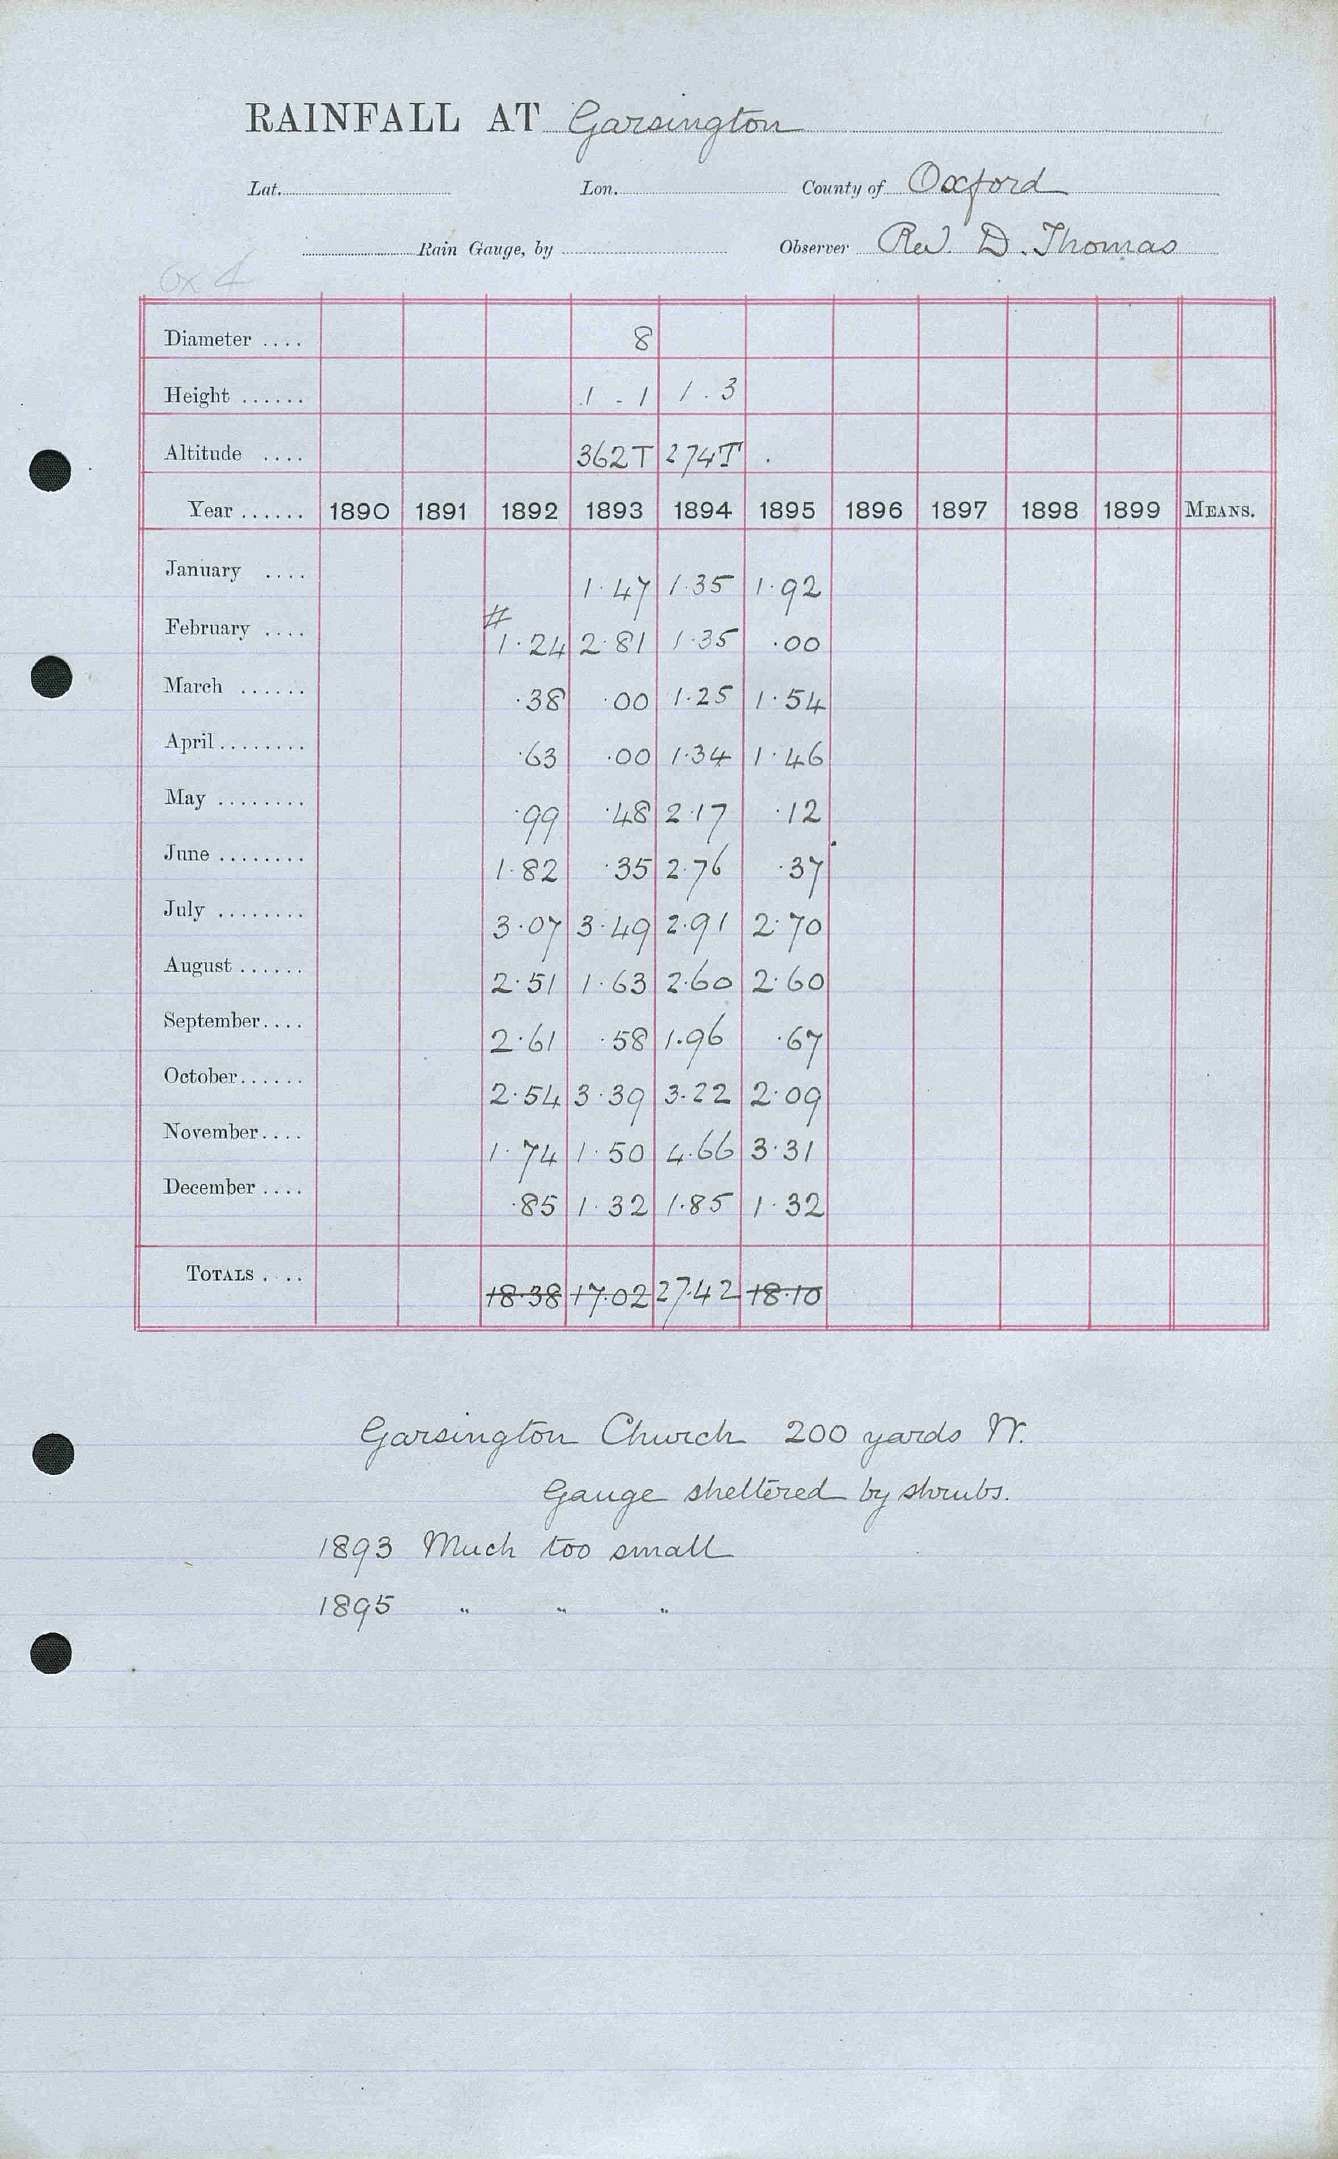 RAINFALL AT Garsington
Lat. Lon. County of Oxford
Rain Gauge, by Observer Rev. D. Thomas
Ox 4
Diameter .... 8
Height ...... 1 - 1 1 . 3
Altitude .... 362T 274T .
Year ...... 1890 1891 1892 1893 1894 1895 1896 1897 1898 1899 MEANS.
January .... 1.47 1.35 1.92
February .... # 1.24 2.81 1.35 .00
March ...... .38 .00 1.25 1.54
April ........ .63 .00 1.34 1.46
May ........ .99 .48 2.17 .12
June ........ 1.82 .35 2.76 .37
July ........ 3.07 3.49 2.91 2.70
August ...... 2.51 1.63 2.60 2.60
September.... 2.61 .58 1.96 .67
October...... 2.54 3.39 3.22 2.09
November.... 1.74 1.50 4.66 3.31
December .... .85 1.32 1.85 1.32
TOTALS .... 18.38 17.02 27.42 18.10
Garsington Church 200 yards W.
Gauge sheltered by shrubs.
1893 Much too small
1895 " " "